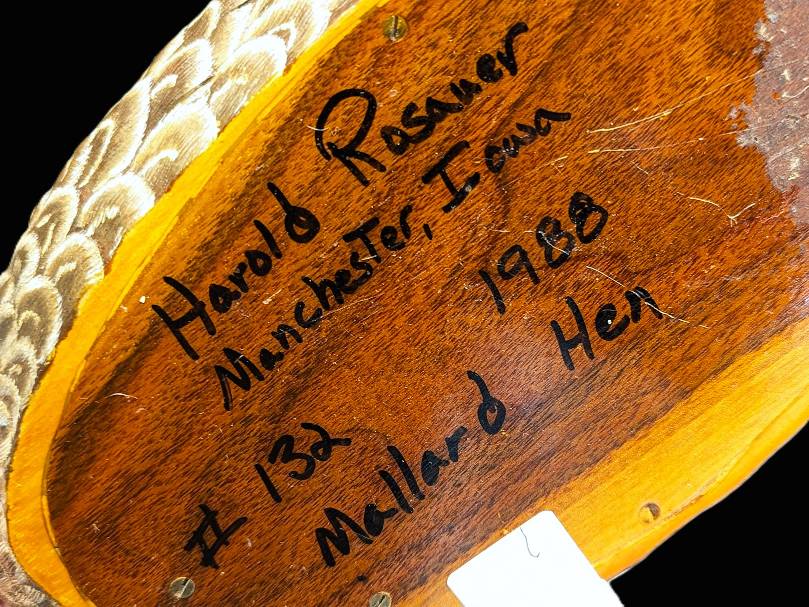 Harold Rosauer
Manchester, Iowa
1988
# 132
Mallard Hen